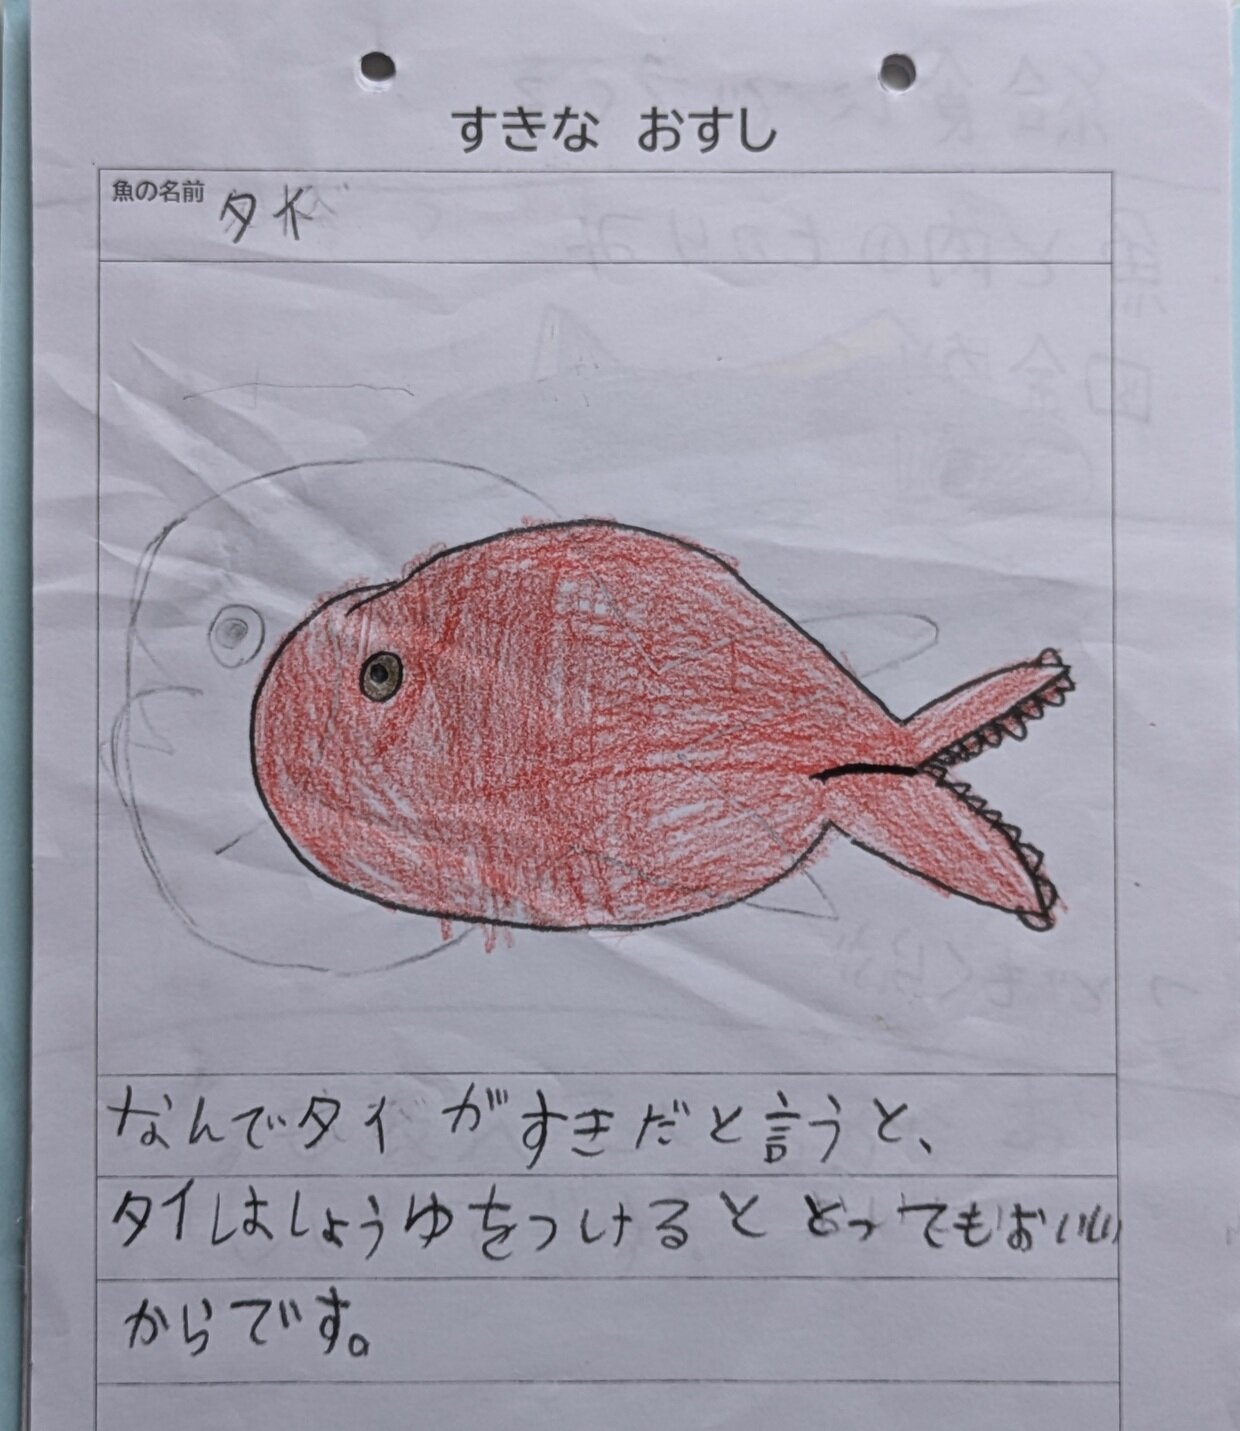 すきな おすし
魚の名前 タイ
なんでタイがすきだと言うと、
タイはしょうゆをつけるととってもおいしい
からです。